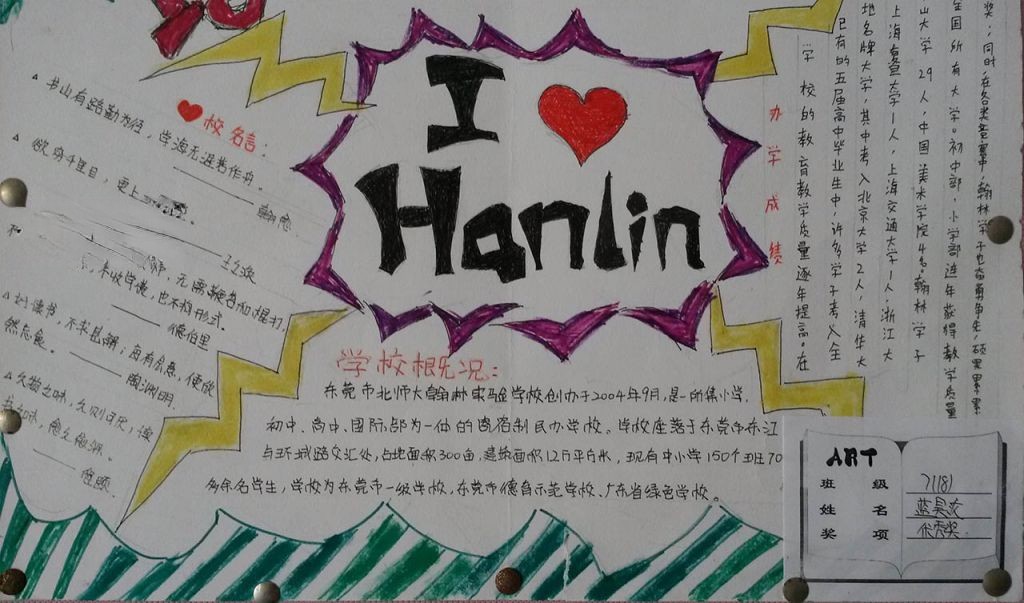 I ❤
Hanlin
❤校名言：
△ 书山有路勤为径，学海无涯苦作舟。
—— 韩愈
△ 欲穷千里目，更上
—— 王之涣
，无需鞭苔加棍打，
未收学愧，也不拘形式。
—— 德伯里
△ 好读书，不求甚解；每有会意，便欣
然忘食。 —— 陶渊明
学校概况：
东莞市北师大翰林实验学校创办于2004年9月，是一所集小学、
初中、高中、国际部为一体的寄宿制民办学校。学校座落于东莞市东江
与环城路交汇处，占地面积300亩，建筑面积12万平方米，现有中小学150个班70
多余名学生，学校为东莞市一级学校、东莞市德育示范学校、广东省绿色学校。
办学成绩
学校的教育教学质量逐年提高。在
已有的五届高中毕业生中，许多学子考入全
地名牌大学，其中考入北京大学2人，清华大
上海复旦大学1人，上海交通大学1人，浙江大
山大学29人，中国美术学院4名。翰林学子
全国所有大学。初中部，小学部连年获得教学质量
奖；同时，在各类竞赛中，翰林学子也奋勇争先，硕果累累
ART
班 级 71181
姓 名
奖 项 优秀奖